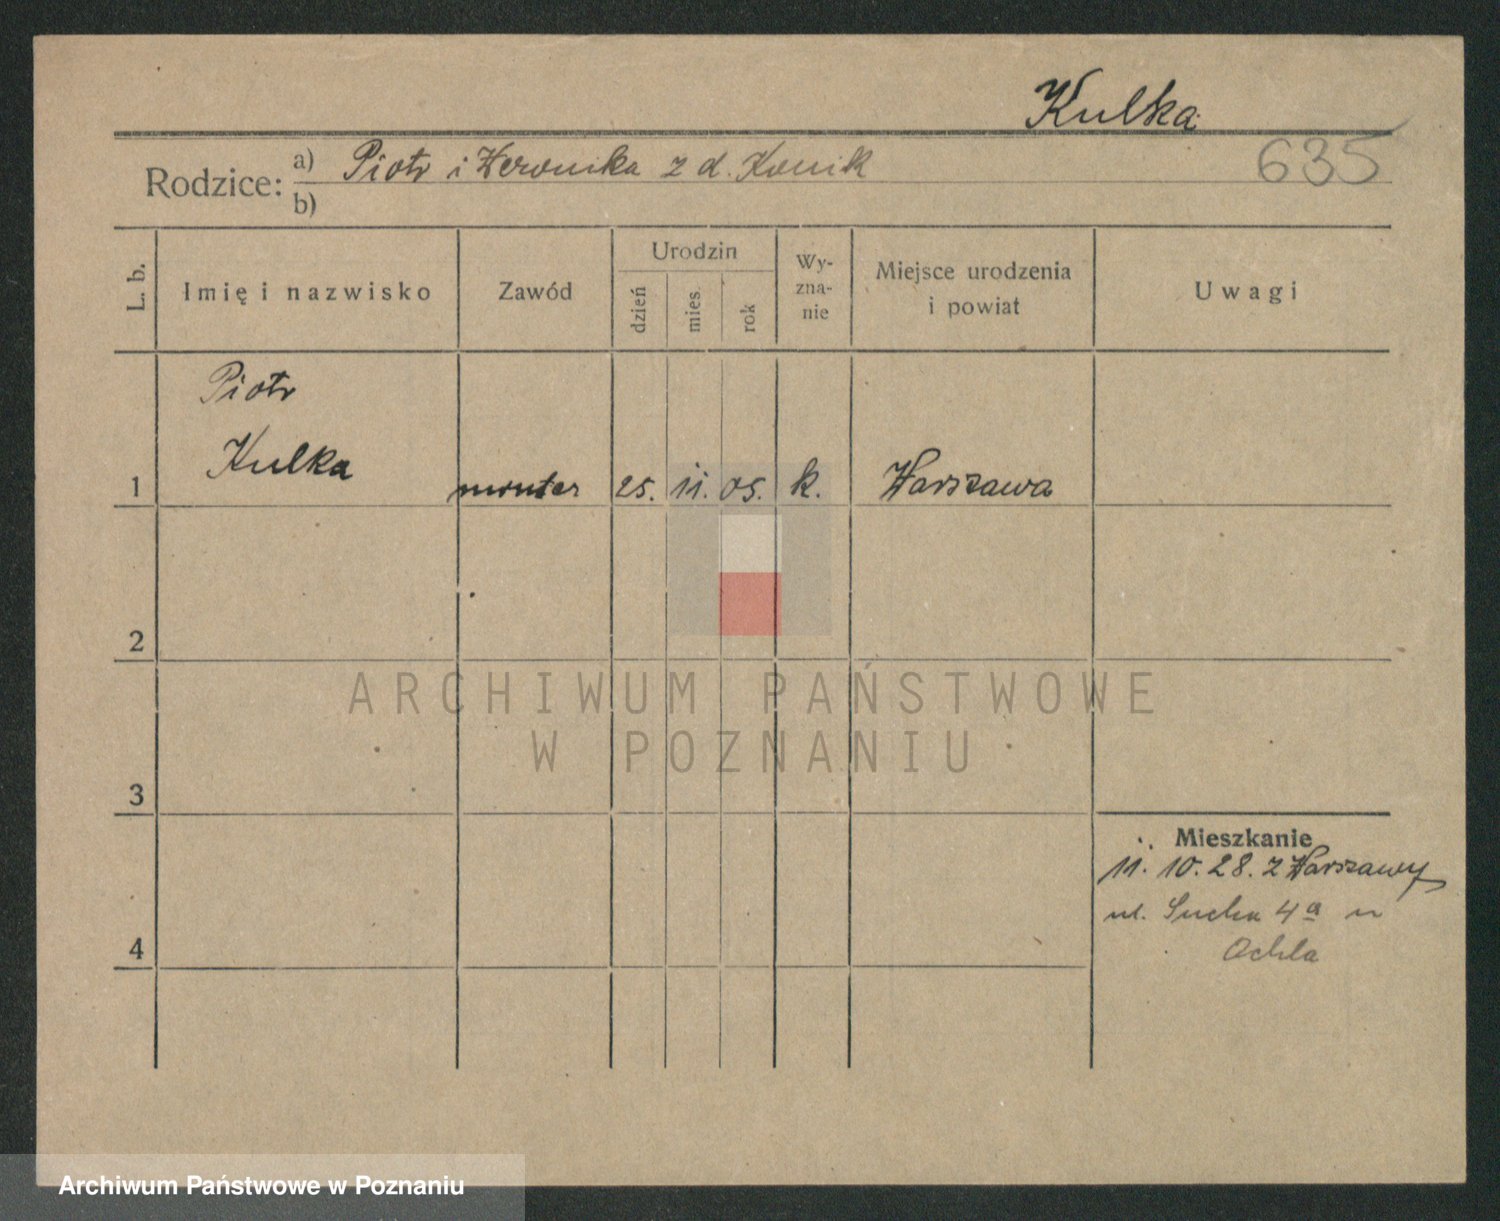 Kulka
635
Rodzice: a) Piotr i Weronika z d. Konik
b)
L. b.
Imię i nazwisko
Zawód
Urodzin
dzień
mies.
rok
Wy-
zna-
nie
Miejsce urodzenia
i powiat
Uwagi
Piotr
Kulka
1
monter
25. 11. 05. k. Warszawa
2
ARCHIWUM PAŃSTWOWE
W POZNANIU
3
Mieszkanie
11. 10. 28. z Warszawy
ul. Sucha 4a u
4
Ochla
Archiwum Państwowe w Poznaniu